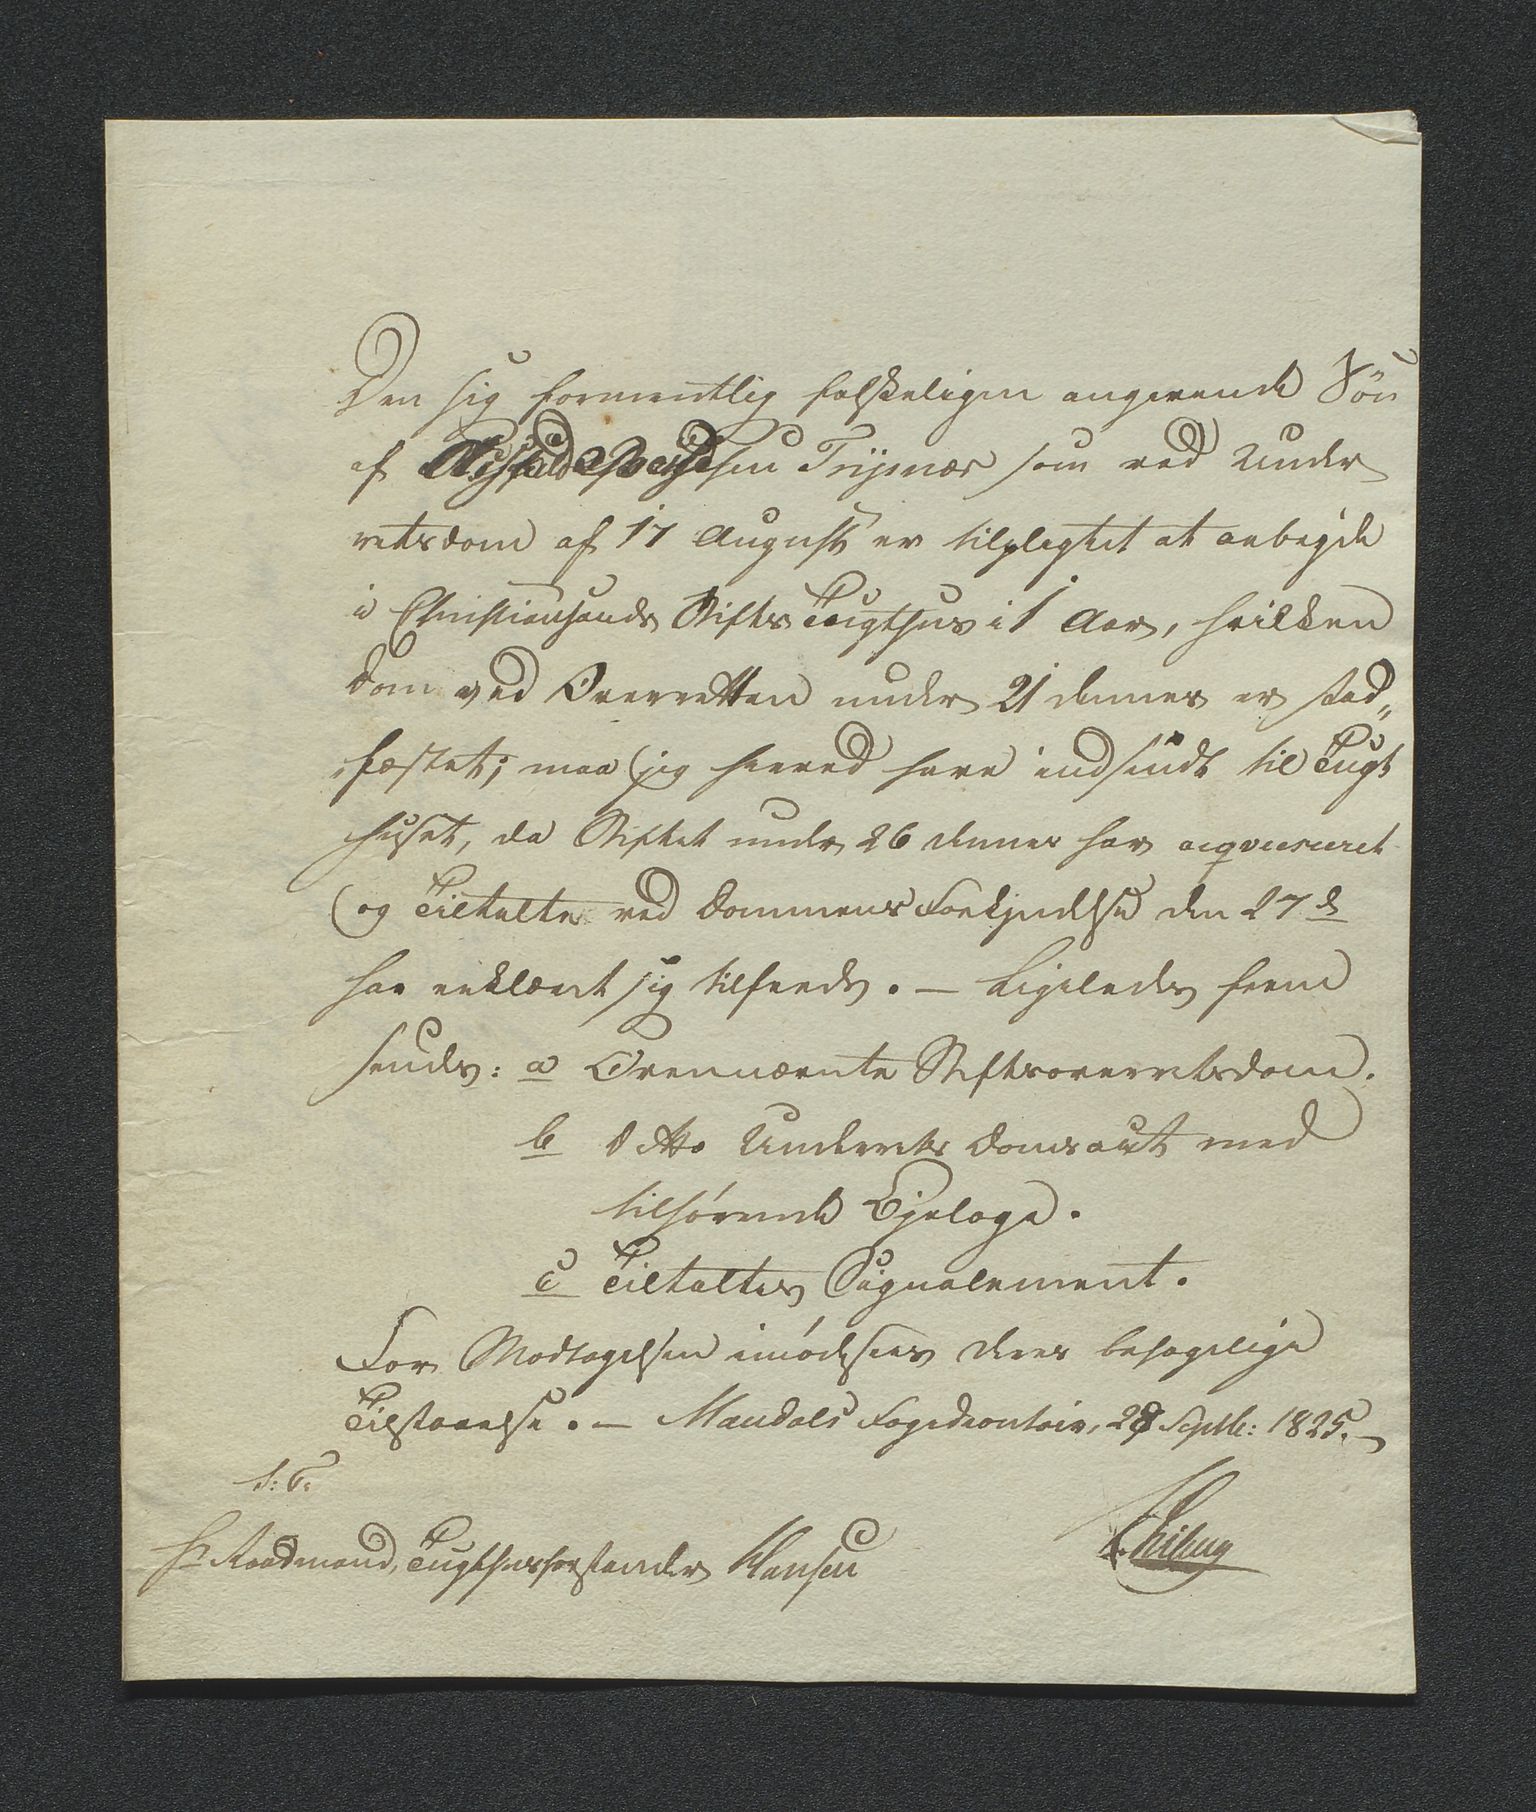 Den sig formentlig falskeligen angivende Søn
af Trijsnæs som ved Under
retsdom af 17 August er tilpligtet at arbeyde
i Christiansands Stifts Tugthus i 1 Aar, hvilken
Dom ved Overretten under 21 dennes er stad„
„fæstet; maa jeg herved have indsendt til Tugt
huset, da Stiftet under 26 dennes har acqviesceret
og Tiltalte ved Dommens Forkyndelse den 27 d
har erklært sig tilfreds. — Ligeledes frem
sendes: a Ovennævnte Stiftsoverretsdom.
b ditto Underrets Domsact med
tilhørende Bjelage.
c Tiltaltes Signalement.
For Modtagelsen imødesees deres behagelige
Tilstaaelse. — Mandals Fogedcontoir, 28 Septb: 1825. —
S: T.
Hr Raadmand, Tugthusforstander Hansen